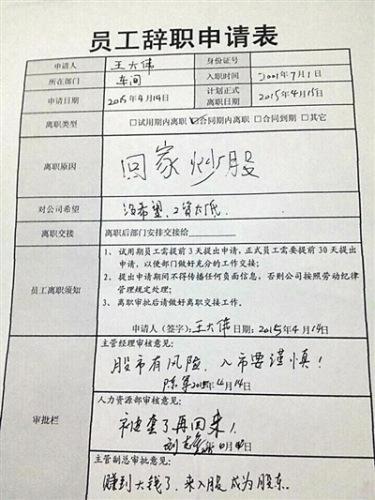 员工辞职申请表
申请人 王大伟 身份证号
所在部门 车间 入职时间 2001年7月1日
申请日期 2015年4月14日 计划正式离职日期 2015年4月15日
离职类型 □试用期内离职 ☑合同期内离职 □合同到期 □其它
离职原因 回家炒股
对公司希望 没希望，工资太低.
离职交接 离职后部门安排交接给
员工离职须知
1、试用期员工需提前3天提出申请，正式员工需要提前30天提出
申请，以便部门做好充分的工作交接；
2、提出申请期间不得传播任何负面信息，否则公司按照劳动纪律
管理规定处理；
3、离职审批后请做好离职交接工作。
申请人（签字）：王大伟 日期：2015年4月14日
审批栏
主管经理审核意见：
股市有风险，入市要谨慎！
陈军 2015年4月14日
人力资源部审核意见：
被套了再回来！
主管副总审批意见：
赚到大钱了，来入股成为股东.